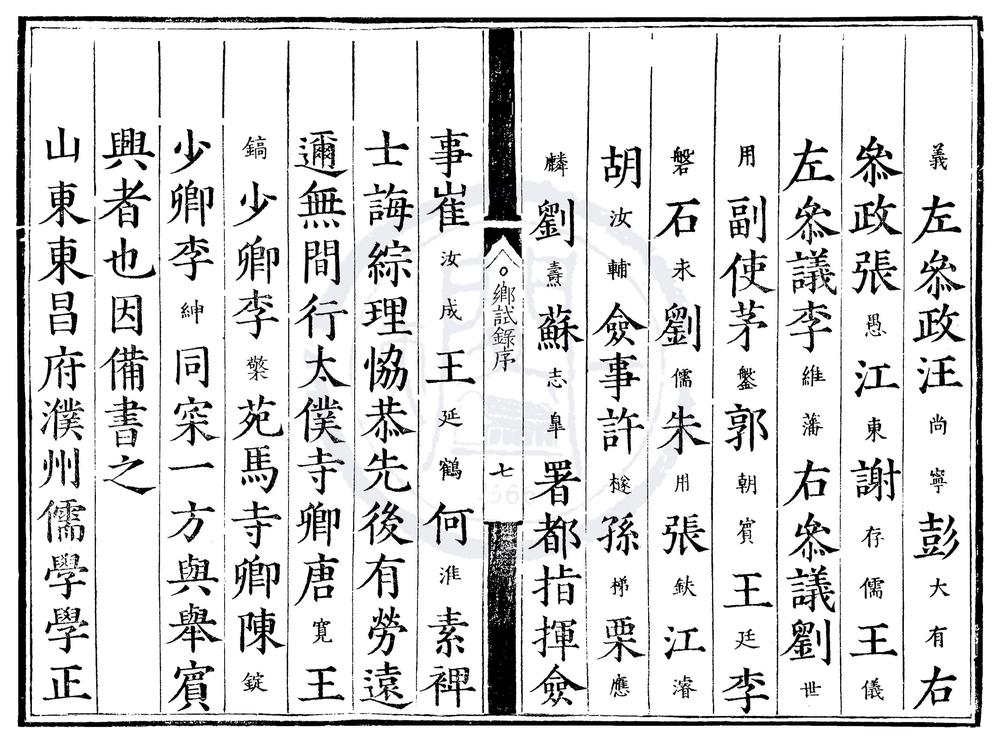 義左叅政汪尚寧彭大有右
叅政張愚江東謝存儒王儀
左叅議李維藩右叅議劉世
用副使茅鑿郭朝賓王廷李
磐石永劉儒朱用張鈇江濬
胡汝輔僉事許檖孫梯栗應
麟劉燾蘇志臯署都指揮僉
鄉試錄序
七
事崔汝成王延鶴何淮素裨
士誨綜理恊恭先後有勞遠
邇無間行太僕寺卿唐寛王
鎬少卿李檠苑馬寺卿陳錠
少卿李紳同寀一方與舉賓
興者也因備書之
山東東昌府濮州儒學學正